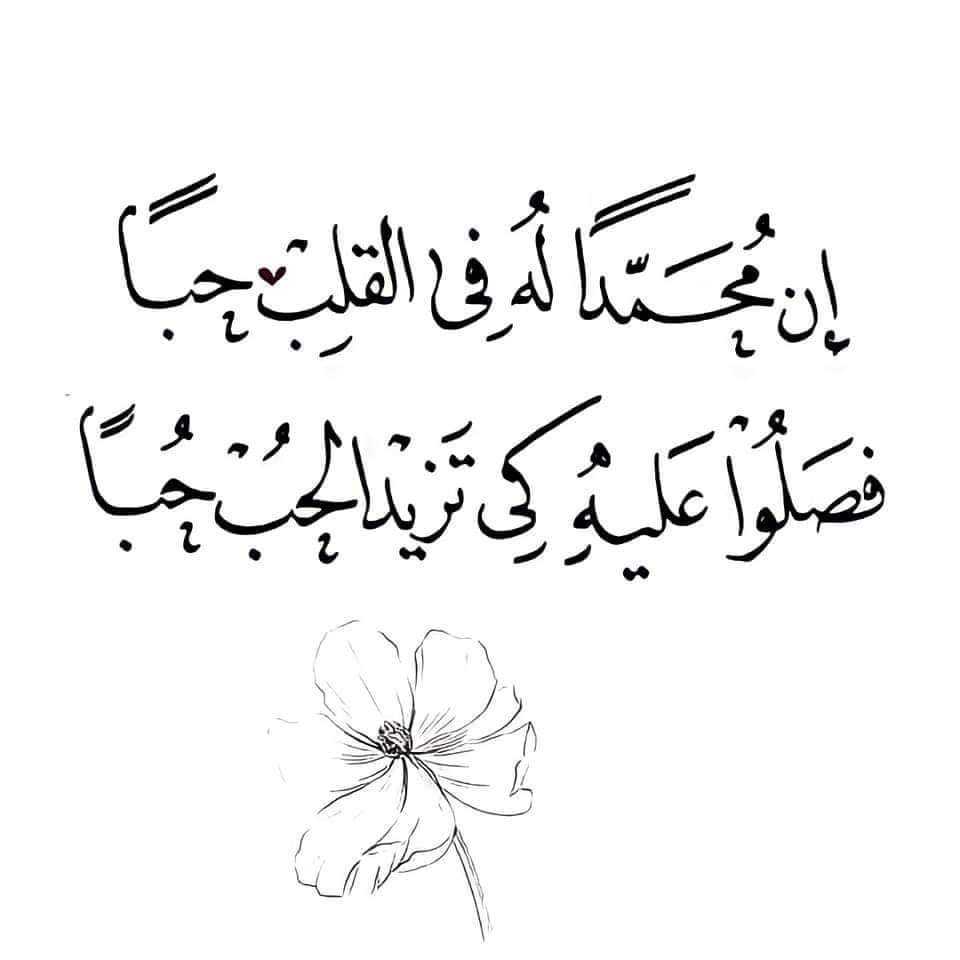 إن مُحَمّدًا لهُ فِى القلِبْ حباً
فصَلُوْا عَليهُِ كِى تَزيْدالحُبْ حُباً